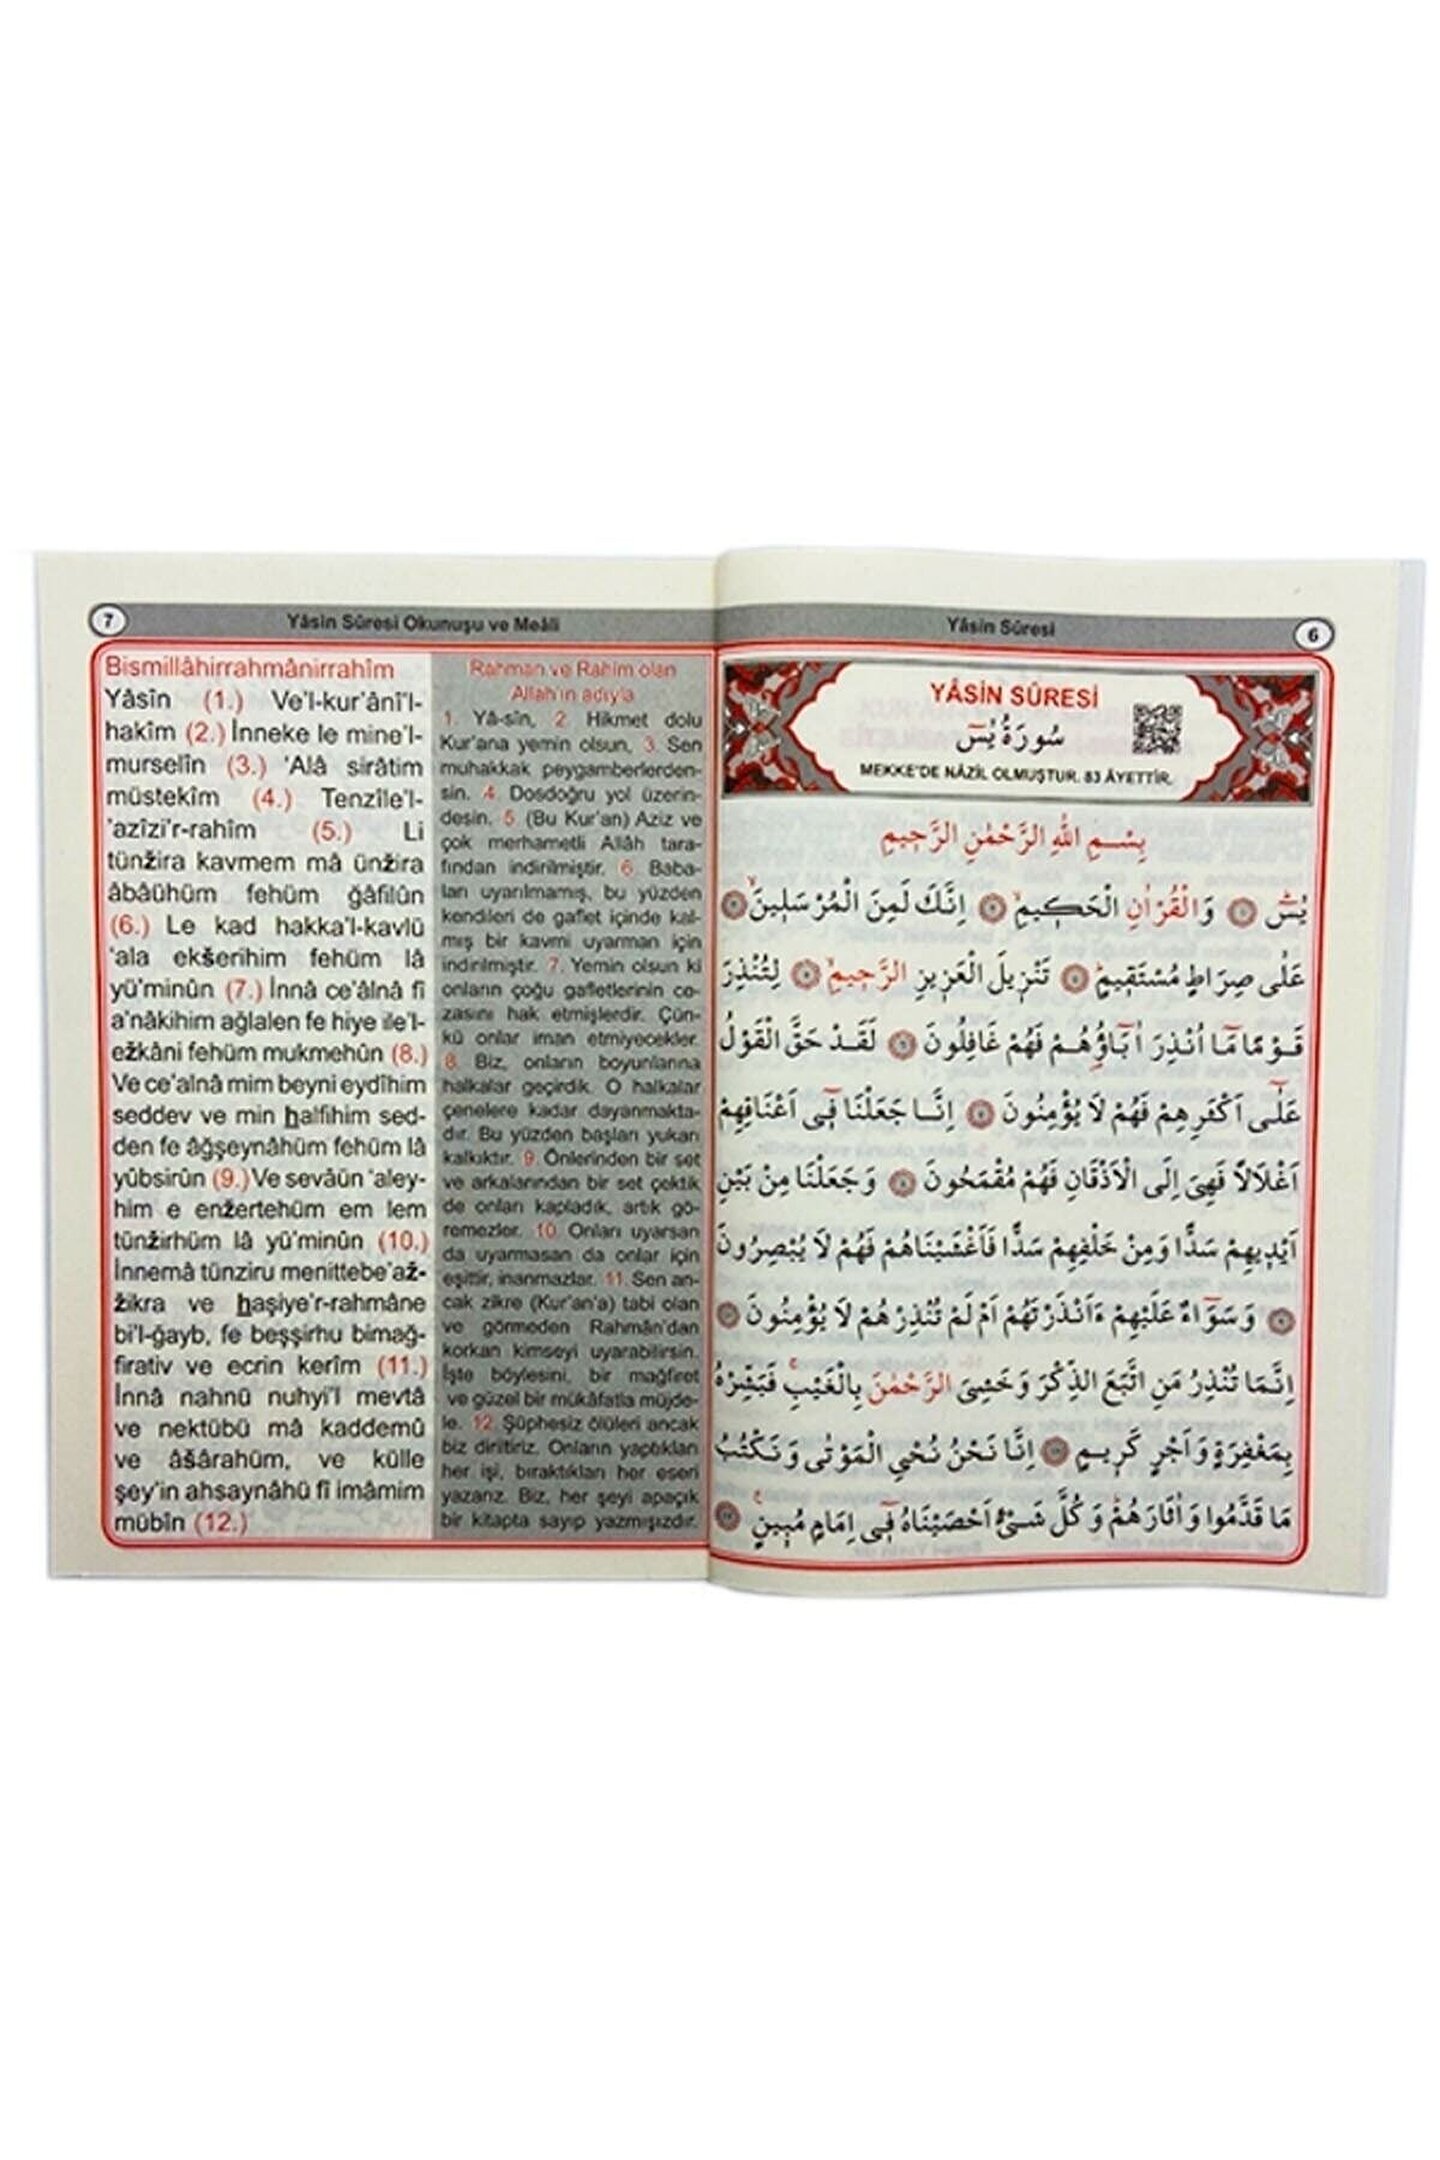 7
Yâsin Sûresi Okunuşu ve Meâli
Bismillâhirrahmânirrahîm
Yâsîn (1.) Ve'l-kur'ânî'l-
hakîm (2.) İnneke le mine'l-
murselîn (3.) 'Alâ sirâtim
müstekîm (4.) Tenzîle'l-
'azîzi'r-rahîm (5.) Li
tünžira kavmem mâ ünžira
âbâühüm fehüm ğâfilûn
(6.) Le kad hakka'l-kavlû
'ala ekšerihim fehüm lâ
yü'minûn (7.) İnnâ ce'âlnâ fî
a'nâkihim ağlalen fe hiye ile'l-
ežkâni fehüm mukmehûn (8.)
Ve ce'alnâ mim beyni eydîhim
seddev ve min halfihim sed-
den fe âğşeynâhüm fehüm lâ
yûbsirûn (9.) Ve sevâün 'aley-
him e enžertehüm em lem
tünžirhüm lâ yü'minûn (10.)
İnnemâ tünziru menittebe'až-
žikra ve haşiye'r-rahmâne
bi'l-ğayb, fe beşşirhu bimağ-
firativ ve ecrin kerîm (11.)
İnnâ nahnû nuhyi'l mevtâ
ve nektübû mâ kaddemû
ve âšârahüm, ve külle
şey'in ahsaynâhû fî imâmim
mübîn (12.)
Rahman ve Rahîm olan
Allah'ın adıyla
1. Yâ-sîn, 2. Hikmet dolu
Kur'ana yemin olsun, 3. Sen
muhakkak peygamberlerden-
sin. 4. Dosdoğru yol üzerin-
desin. 5. (Bu Kur'an) Aziz ve
çok merhametli Allâh tara-
fından indirilmiştir. 6. Baba-
ları uyarılmamış, bu yüzden
kendileri de gaflet içinde kal-
mış bir kavmi uyarman için
indirilmiştir. 7. Yemin olsun ki
onların çoğu gafletlerinin ce-
zasını hak etmişlerdir. Çün-
kü onlar iman etmiyecekler.
8. Biz, onların boyunlarına
halkalar geçirdik. O halkalar
çenelere kadar dayanmakta-
dır. Bu yüzden başları yukarı
kalkıktır. 9. Önlerinden bir set
ve arkalarından bir set çektik
de onları kapladık, artık gö-
remezler. 10. Onları uyarsan
da uyarmasan da onlar için
eşittir, inanmazlar. 11. Sen an-
cak zikre (Kur'an'a) tabi olan
ve görmeden Rahmân'dan
korkan kimseyi uyarabilirsin.
İşte böylesini, bir mağfiret
ve güzel bir mükâfatla müjde-
le. 12. Şüphesiz ölüleri ancak
biz diriltiriz. Onların yaptıkları
her işi, bıraktıkları her eseri
yazarız. Biz, her şeyi apaçık
bir kitapta sayıp yazmışızdır.
Yâsin Sûresi
6
YÂSİN SÛRESİ
سُورَةُ يٰسٓ
MEKKE'DE NÂZİL OLMUŞTUR. 83 ÂYETTİR.
بِسْمِ اللهِ الرَّحْمٰنِ الرَّحِيمِ
يٰسٓ ﴿١﴾ وَالْقُرْاٰنِ الْحَكِيمِۙ ﴿٢﴾ اِنَّكَ لَمِنَ الْمُرْسَلِينَۙ ﴿٣﴾
عَلٰى صِرَاطٍ مُسْتَقِيمٍۜ ﴿٤﴾ تَنْزِيلَ الْعَزِيزِ الرَّحِيمِۙ ﴿٥﴾ لِتُنْذِرَ
قَوْمًا مَٓا اُنْذِرَ اٰبَٓاؤُهُمْ فَهُمْ غَافِلُونَ ﴿٦﴾ لَقَدْ حَقَّ الْقَوْلُ
عَلٰٓى اَكْثَرِهِمْ فَهُمْ لَا يُؤْمِنُونَ ﴿٧﴾ اِنَّا جَعَلْنَا فِٓى اَعْنَاقِهِمْ
اَغْلَالًا فَهِىَ اِلَى الْاَذْقَانِ فَهُمْ مُقْمَحُونَ ﴿٨﴾ وَجَعَلْنَا مِنْ بَيْنِ
اَيْدِيهِمْ سَدًّا وَمِنْ خَلْفِهِمْ سَدًّا فَاَغْشَيْنَاهُمْ فَهُمْ لَا يُبْصِرُونَ
﴿٩﴾ وَسَوَٓاءٌ عَلَيْهِمْ ءَاَنْذَرْتَهُمْ اَمْ لَمْ تُنْذِرْهُمْ لَا يُؤْمِنُونَ ﴿١٠﴾
اِنَّمَا تُنْذِرُ مَنِ اتَّبَعَ الذِّكْرَ وَخَشِىَ الرَّحْمٰنَ بِالْغَيْبِۚ فَبَشِّرْهُ
بِمَغْفِرَةٍ وَاَجْرٍ كَرِيمٍ ﴿١١﴾ اِنَّا نَحْنُ نُحْيِى الْمَوْتٰى وَنَكْتُبُ
مَا قَدَّمُوا وَاٰثَارَهُمْۜ وَكُلَّ شَىْءٍ اَحْصَيْنَاهُ فِٓى اِمَامٍ مُبِينٍ۟ ﴿١٢﴾